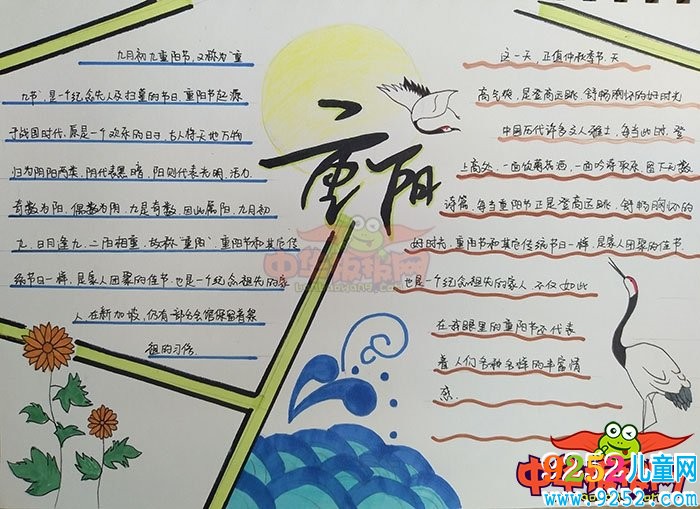 九月初九重阳节,又称为"重
九节",是一个纪念先人及扫墓的节日.重阳节起源
于战国时代,原是一个欢乐的日子.古人将天地万物
归为阴阳两类,阴代表黑暗,阳则代表光明、活力.
奇数为阳,偶数为阴.九是奇数,因此属阳,九月初
九,日月逢九,二阳相重,故称"重阳".重阳节和其它传
统节日一样,是家人团聚的佳节.也是一个纪念祖先的家
人 在新加坡,仍有部分会馆保留着祭
祖的习俗.
重阳
这一天,正值仲秋季节.天
高气爽,是登高远眺,舒畅胸怀的好时光
中国历代许多文人雅士,每当此时,登
上高处,一面饮菊花酒,一面吟诗取乐,留下无数
诗篇.每当重阳节正是登高远眺,舒畅胸怀的
好时光,重阳节和其它传统节日一样,是家人团聚的佳节
也是一个纪念祖先的家人 不仅如此
在我眼里的重阳节还代表
着人们各种各样的丰富情
感.
中华板报网
9252儿童网
www.9252.com